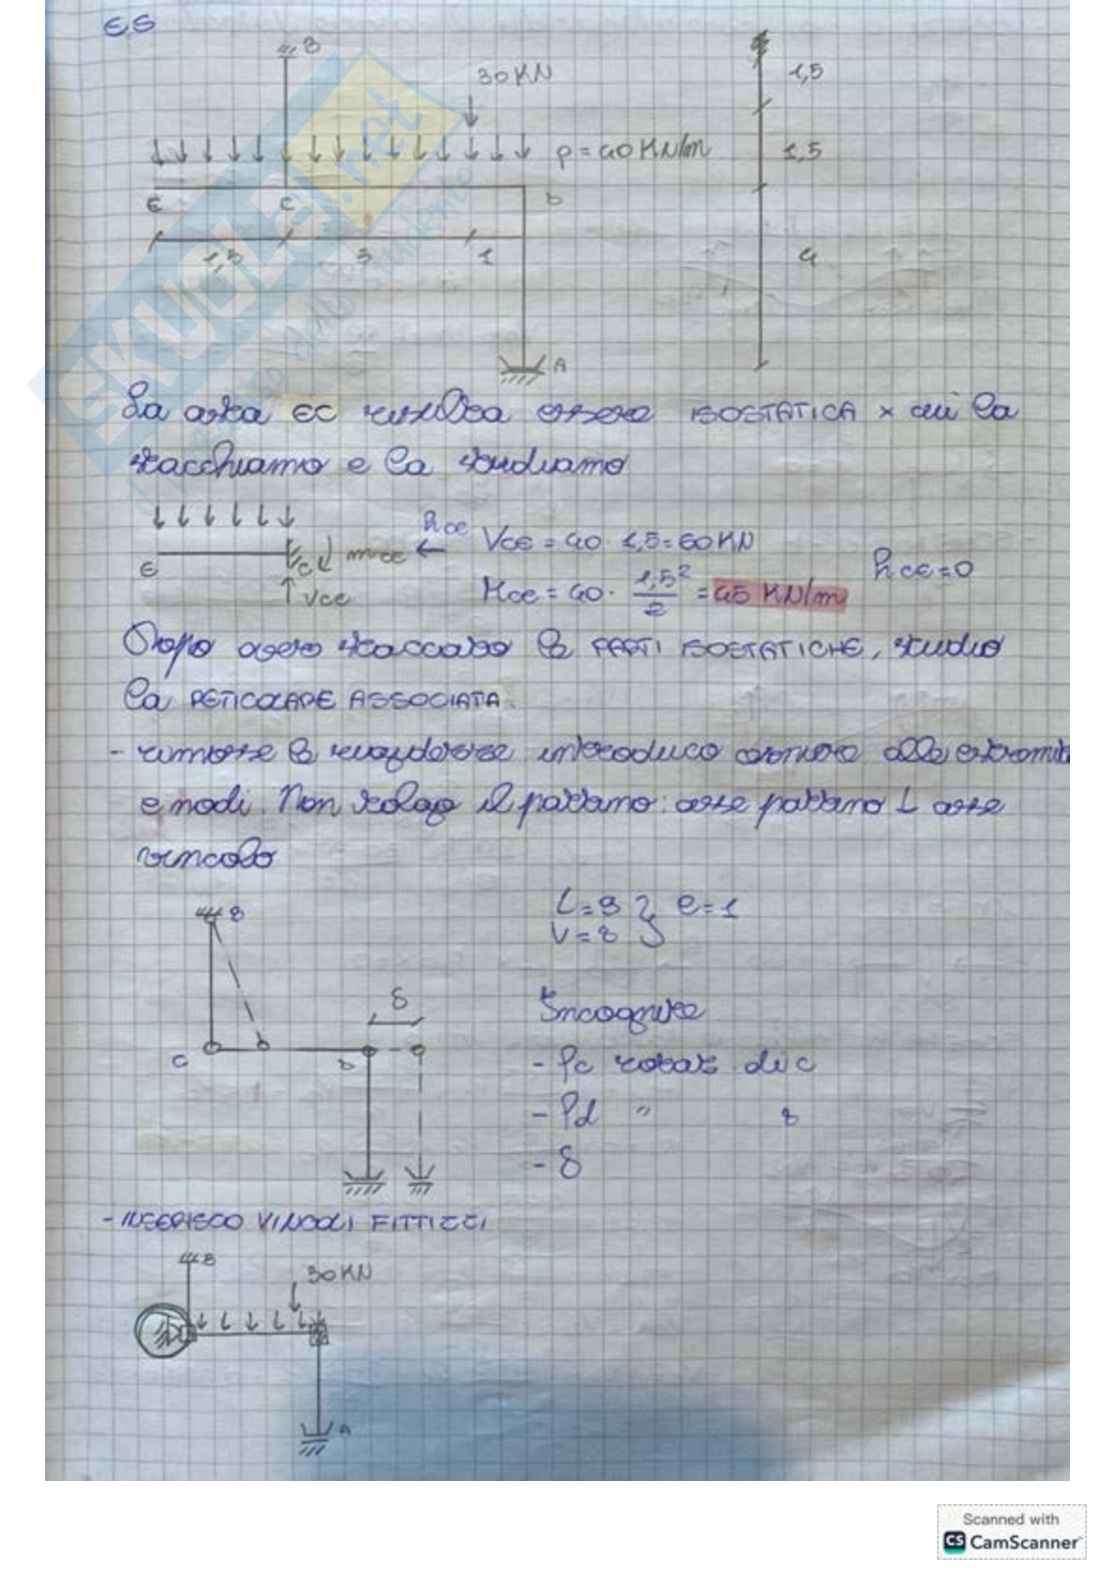 ES
B
30 KN
1,5
p = 40 KN/m
1,5
E C D
1,5 3 1
4
A
La asta EC risulta essere ISOSTATICA x cui la
stacchiamo e la studiamo
E C mce hce Vce
Vce = 40 · 1,5 = 60 KN
hce = 0
Mce = 40 · 1,5²/2 = 45 KN/m
Dopo avere staccato le PARTI ISOSTATICHE, studio
la RETICOLARE ASSOCIATA
- rimosse le introduco cerniere alle
e nodi. Non il pattino: asse pattino ⊥ asse
vincolo
B
e = 1
δ
Incognite
C D
- φc rotaz di C
- φd " 
- δ
- INSERISCO VINCOLI FITTIZZI
B
30 KN
A
Scanned with
CS CamScanner